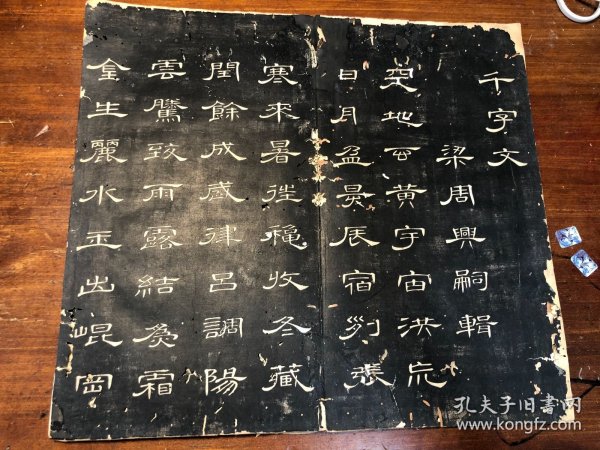 千字文
梁周興嗣輯
天地玄黄宇宙洪荒
日月盈昃辰宿列張
寒來暑往秋收冬藏
閏餘成歲律呂調陽
雲騰致雨露結爲霜
金生麗水玉出崐岡
孔夫子旧書网
www.kongfz.com